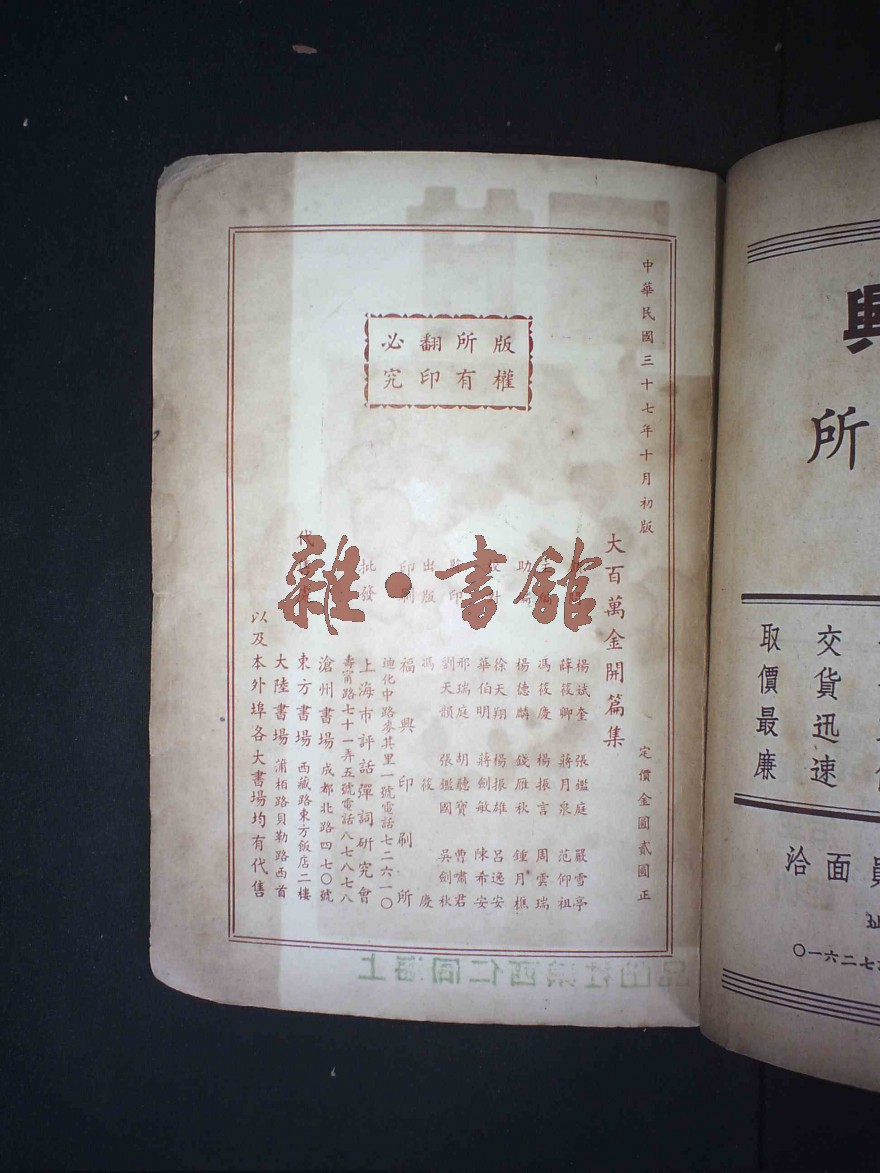 中華民國三十七年十月初版
版權
所有
翻印
必究
大百萬金開篇集
定價金圓貳圓正
楊斌奎 張鑑庭 嚴雪亭
薛筱卿 蔣月泉 范仰祖
馮筱慶 楊振言 周雲瑞
楊德麟 錢雁秋 鍾月樵
徐天翔 楊振雄 呂逸安
華伯明 蔣劍敏 陳希安
邢瑞庭 胡聽寶 曹嘯君
劉天韻 張鑑國 吳劍秋
出版
馮筱慶
印刷
福興印刷所
迪化中路麥其里一號電話七二六一〇
批發
上海市評話彈詞研究會
壽甯路七十一弄五號電話八七八七八
滄州書場 成都北路四七〇號
東方書場 西藏路東方飯店二樓
大陸書場 蒲柏路貝勒路西首
以及本外埠各大書場均有代售
雜·書館
興
所
交貨迅速
取價最廉
員面洽
七二六一〇